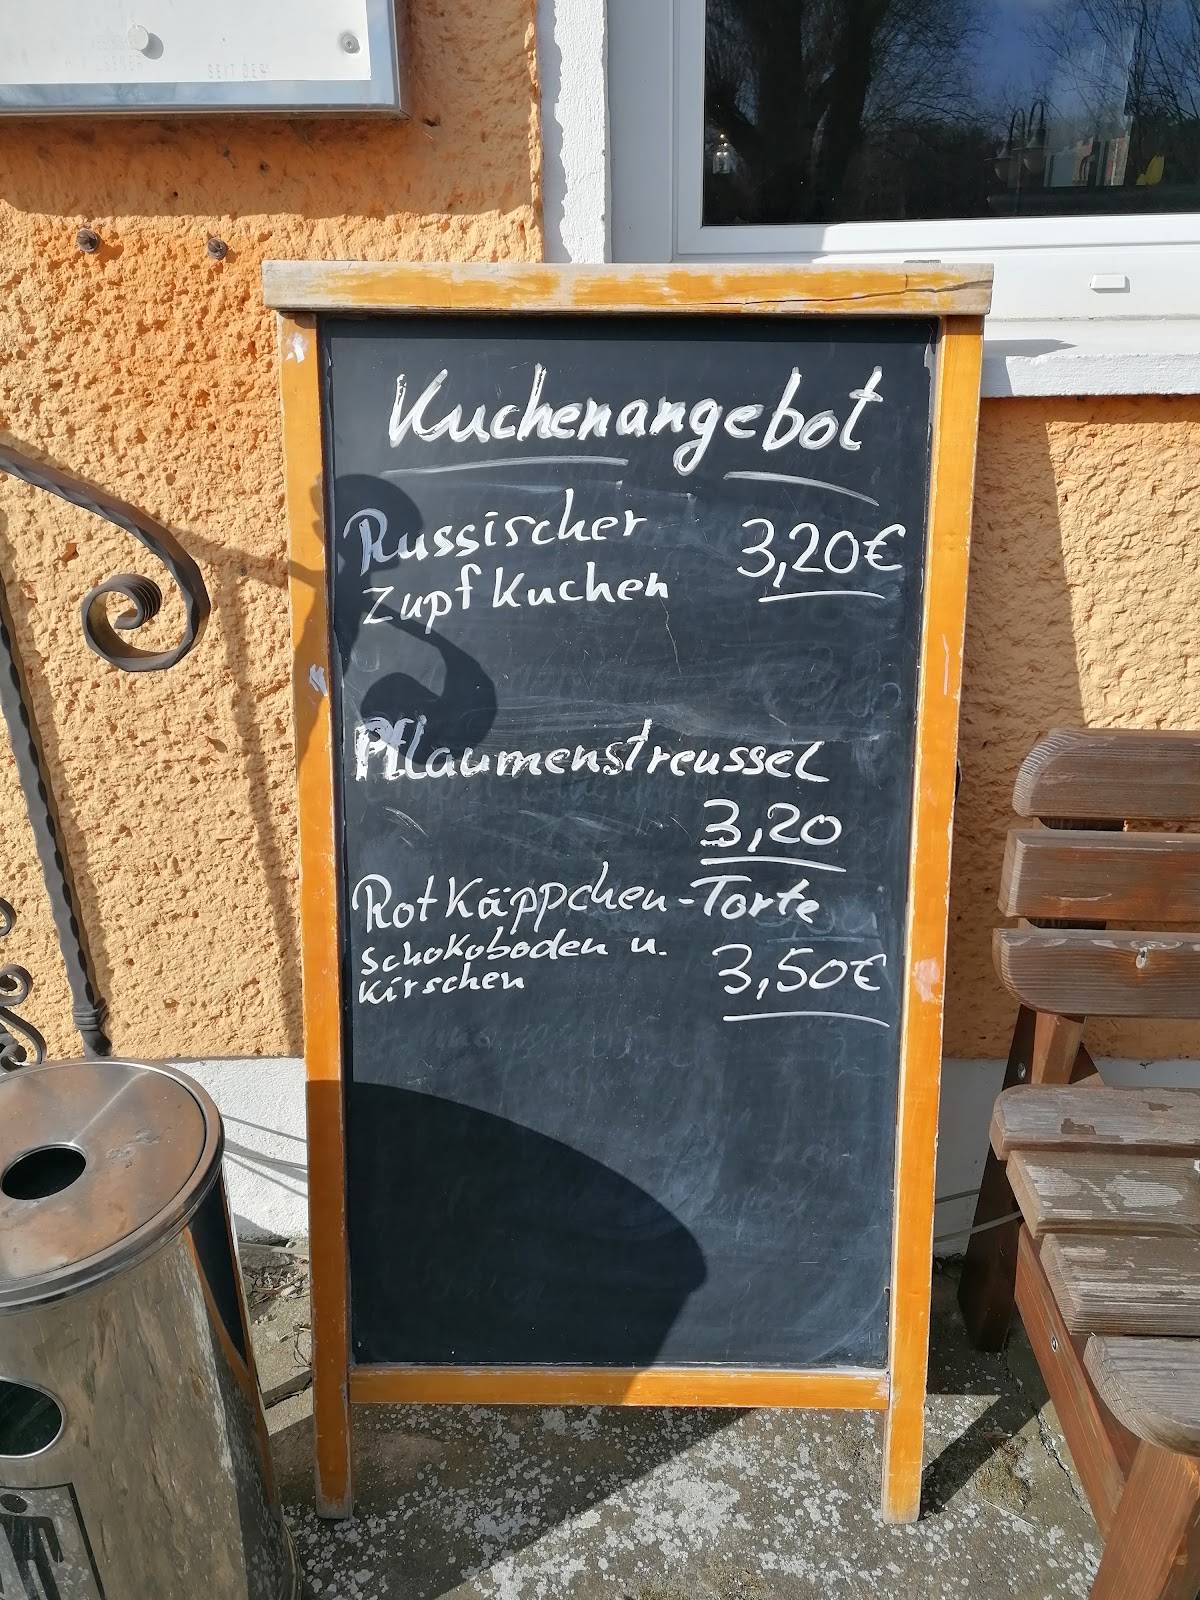 Kuchenangebot
Russischer 3,20€
Zupfkuchen
Pflaumenstreussel
3,20
Rotkäppchen-Torte
Schokoboden u.
Kirschen 3,50€